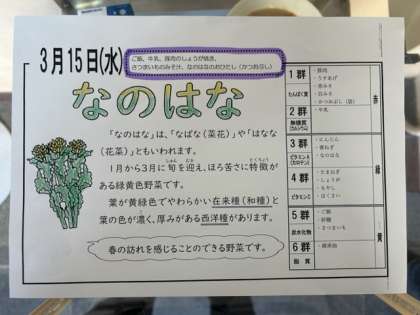 3月15日(水)
ご飯、牛乳、豚肉のしょうが焼き、
さつまいものみそ汁、なのはなのおひたし（かつおぶし）
なのはな
「なのはな」は、「なばな（菜花）」や「はなな
（花菜）」ともいわれます。
1月から3月に旬を迎え、ほろ苦さに特徴が
しゅん むか とくちょう
ある緑黄色野菜です。
葉が黄緑色でやわらかい在来種（和種）と
葉の色が濃く、厚みがある西洋種があります。
春の訪れを感じることのできる野菜です。
1群
たんぱく質
・豚肉
・うすあげ
・赤みそ
・白みそ
・かつおぶし（店）
2群
無機質
(カルシウム)
・牛乳
赤
3群
ビタミンA
(カロテン)
・にんじん
・青ねぎ
・なのはな
4群
ビタミンC
・たまねぎ
・しょうが
・もやし
・はくさい
緑
5群
炭水化物
・ご飯
・砂糖
・さつまいも
6群
脂質
黄